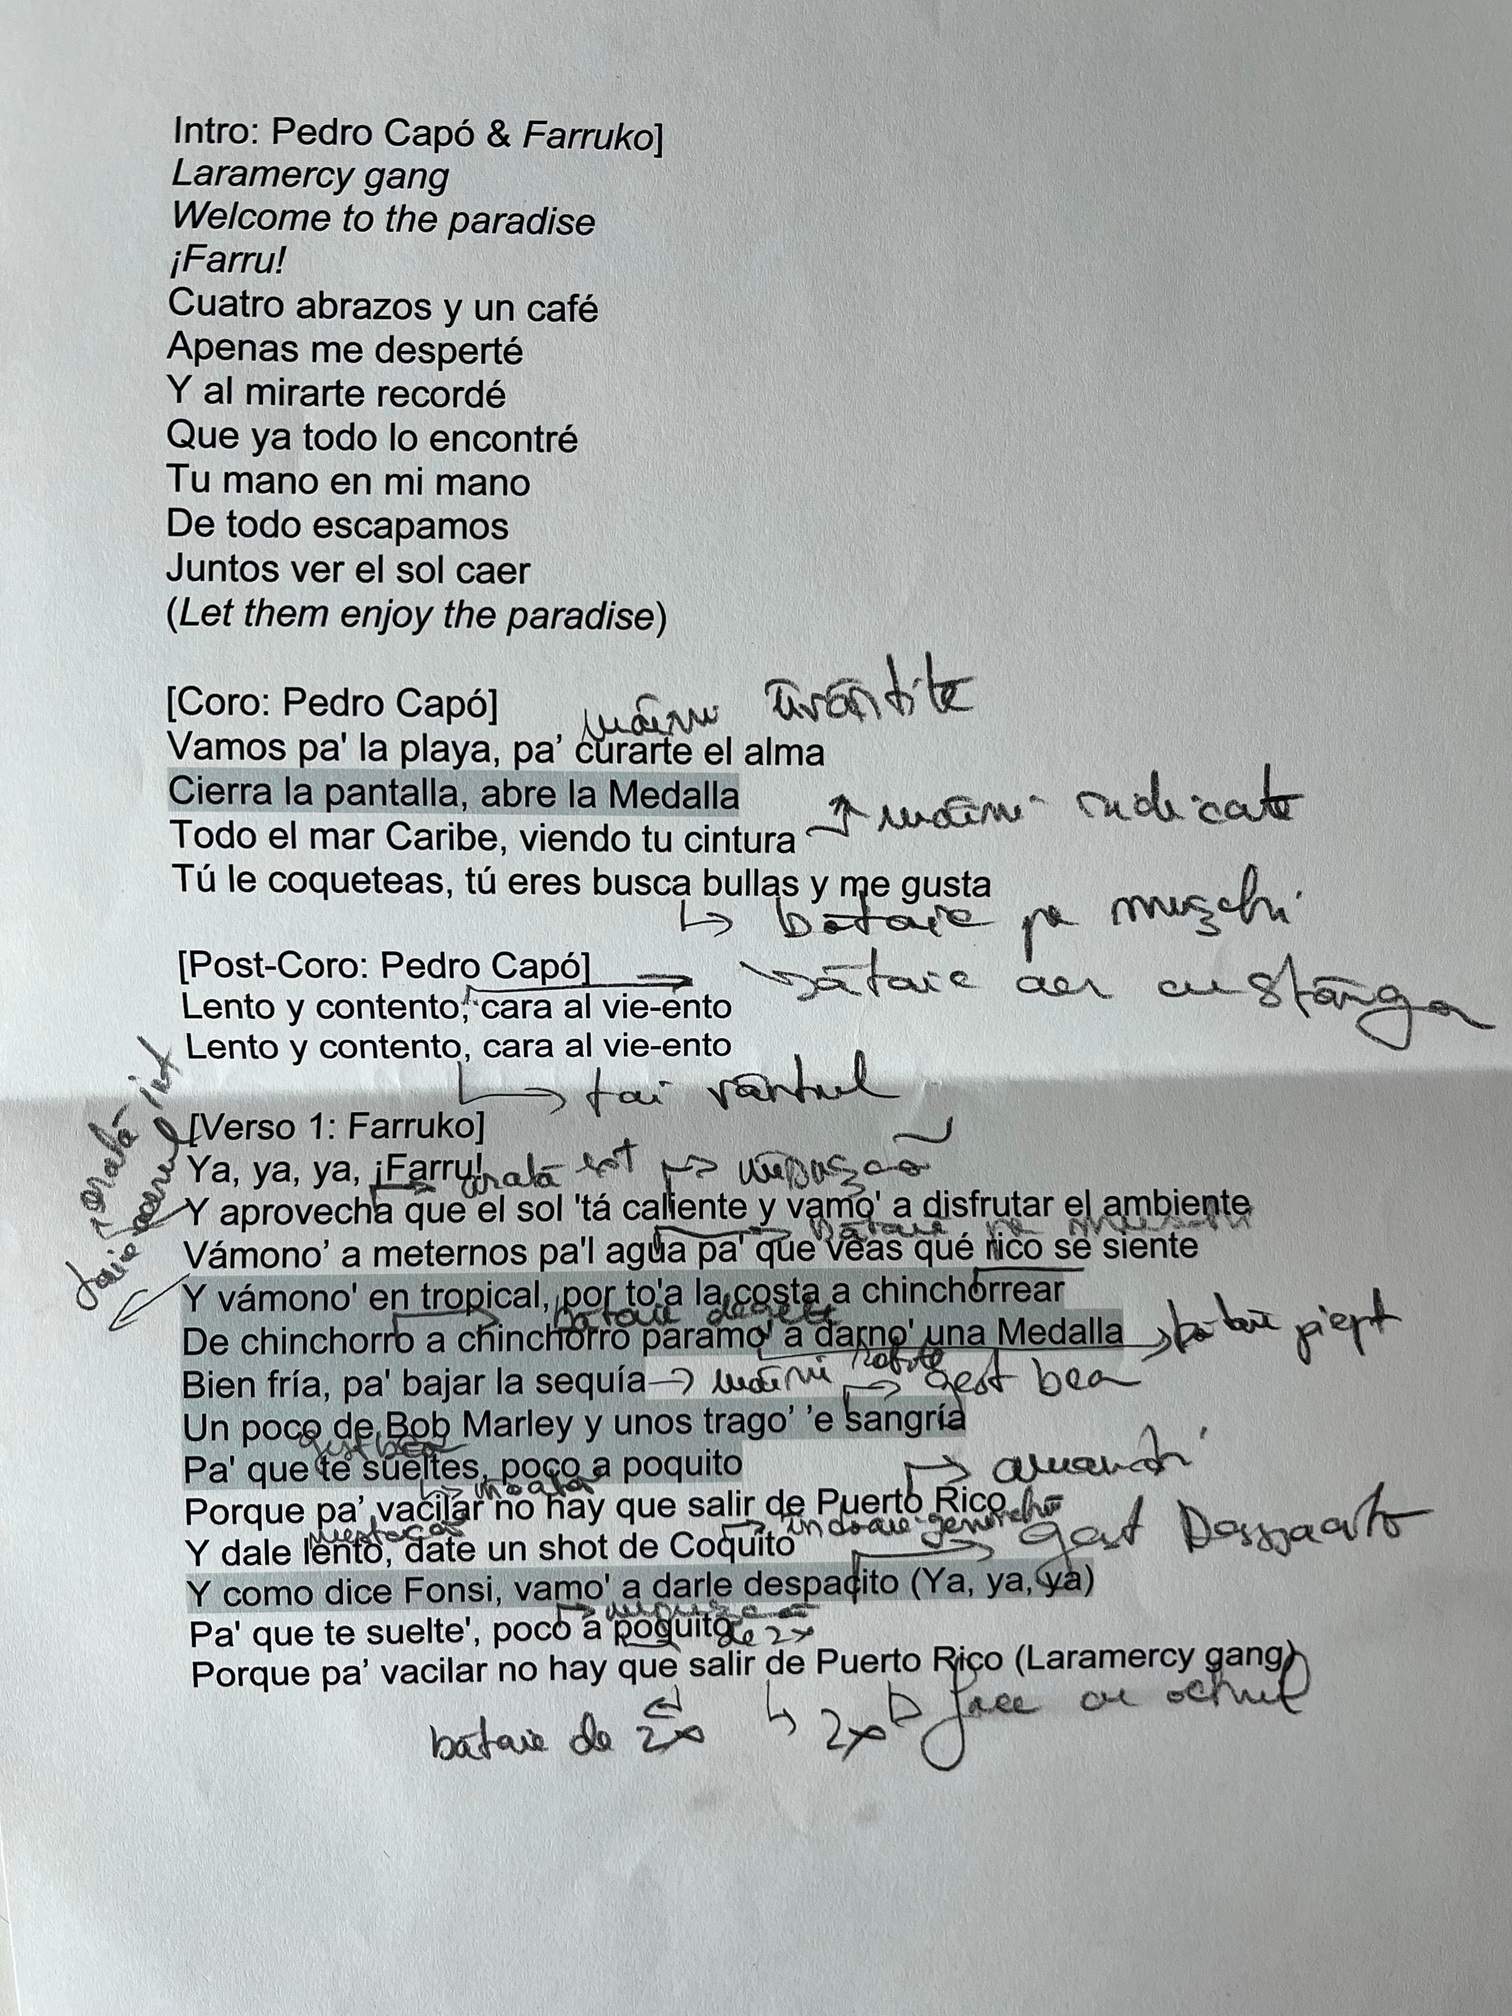 Intro: Pedro Capó & Farruko]
Laramercy gang
Welcome to the paradise
¡Farru!
Cuatro abrazos y un café
Apenas me desperté
Y al mirarte recordé
Que ya todo lo encontré
Tu mano en mi mano
De todo escapamos
Juntos ver el sol caer
(Let them enjoy the paradise)
[Coro: Pedro Capó]
mâini
Vamos pa' la playa, pa’ curarte el alma
Cierra la pantalla, abre la Medalla
mâini ridicate
Todo el mar Caribe, viendo tu cintura
Tú le coqueteas, tú eres busca bullas y me gusta
bataie pe mușchi
[Post-Coro: Pedro Capó]
bătaie aer cu stânga
Lento y contento, cara al vie-ento
Lento y contento, cara al vie-ento
tai vântul
[Verso 1: Farruko]
Ya, ya, ya, ¡Farru!
arată
Y aprovecha que el sol 'tá caliente y vamo' a disfrutar el ambiente
bătaie pe
Vámono’ a meternos pa'l agua pa' que veas qué rico se siente
Y vámono' en tropical, por to'a la costa a chinchorrear
bătaie degete
De chinchorro a chinchorro paramo' a darno' una Medalla
bătaie piept
Bien fría, pa' bajar la sequía
mâini robote
gest bea
Un poco de Bob Marley y unos trago’ ’e sangría
gest bea
Pa' que te sueltes, poco a poquito
Porque pa’ vacilar no hay que salir de Puerto Rico
Y dale lento, date un shot de Coquito
îndoaie genunchi
gest
Y como dice Fonsi, vamo' a darle despacito (Ya, ya, ya)
Pa' que te suelte', poco a poquito
de 2x
Porque pa’ vacilar no hay que salir de Puerto Rico (Laramercy gang)
bătaie de 2x
2x
face cu ochiul